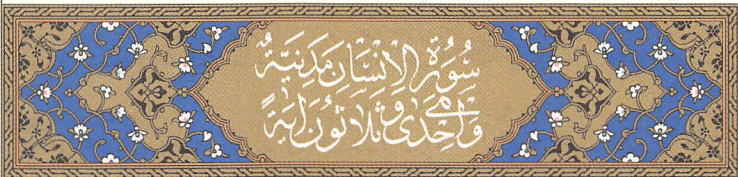 سُورَةُ الإِنْسَانِ مَدَنِيَّةٌ
وَهِيَ إِحْدَى وَثَلَاثُونَ آيَةً